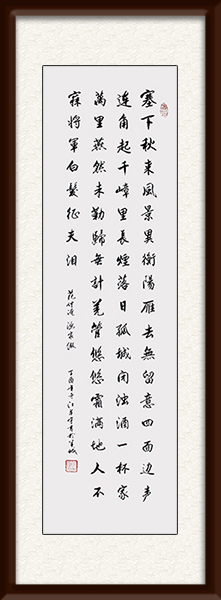 塞下秋来風景異衡陽雁去無留意四面边声
連角起千嶂里長煙落日孤城闭浊酒一杯家
萬里燕然未勒歸無計羌管悠悠霜滿地人不
寐將軍白髮征夫泪
范仲淹漁家傲
丁酉年